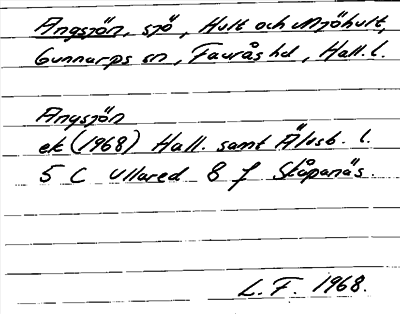 Angsjön, sjö, Hult och Mjöhult,
Gunnarps sn, Faurås hd, Hall. l.
Angsjön
ek (1968) Hall. samt Älvsb. l.
5 C Ullared 8 f Ståpanäs.
L. F. 1968.